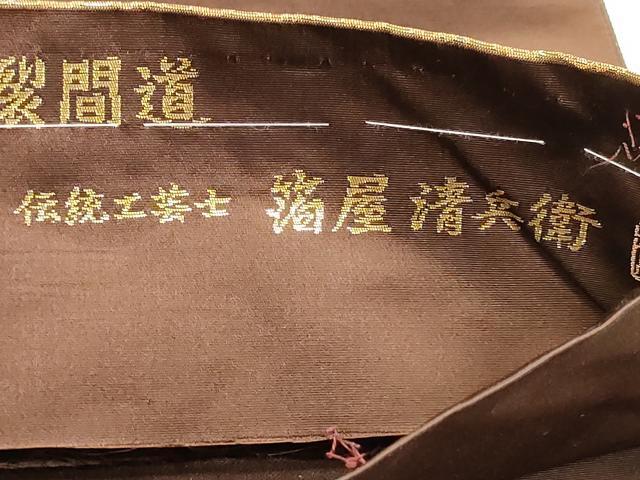 裂間道
伝統工芸士 箔屋清兵衛